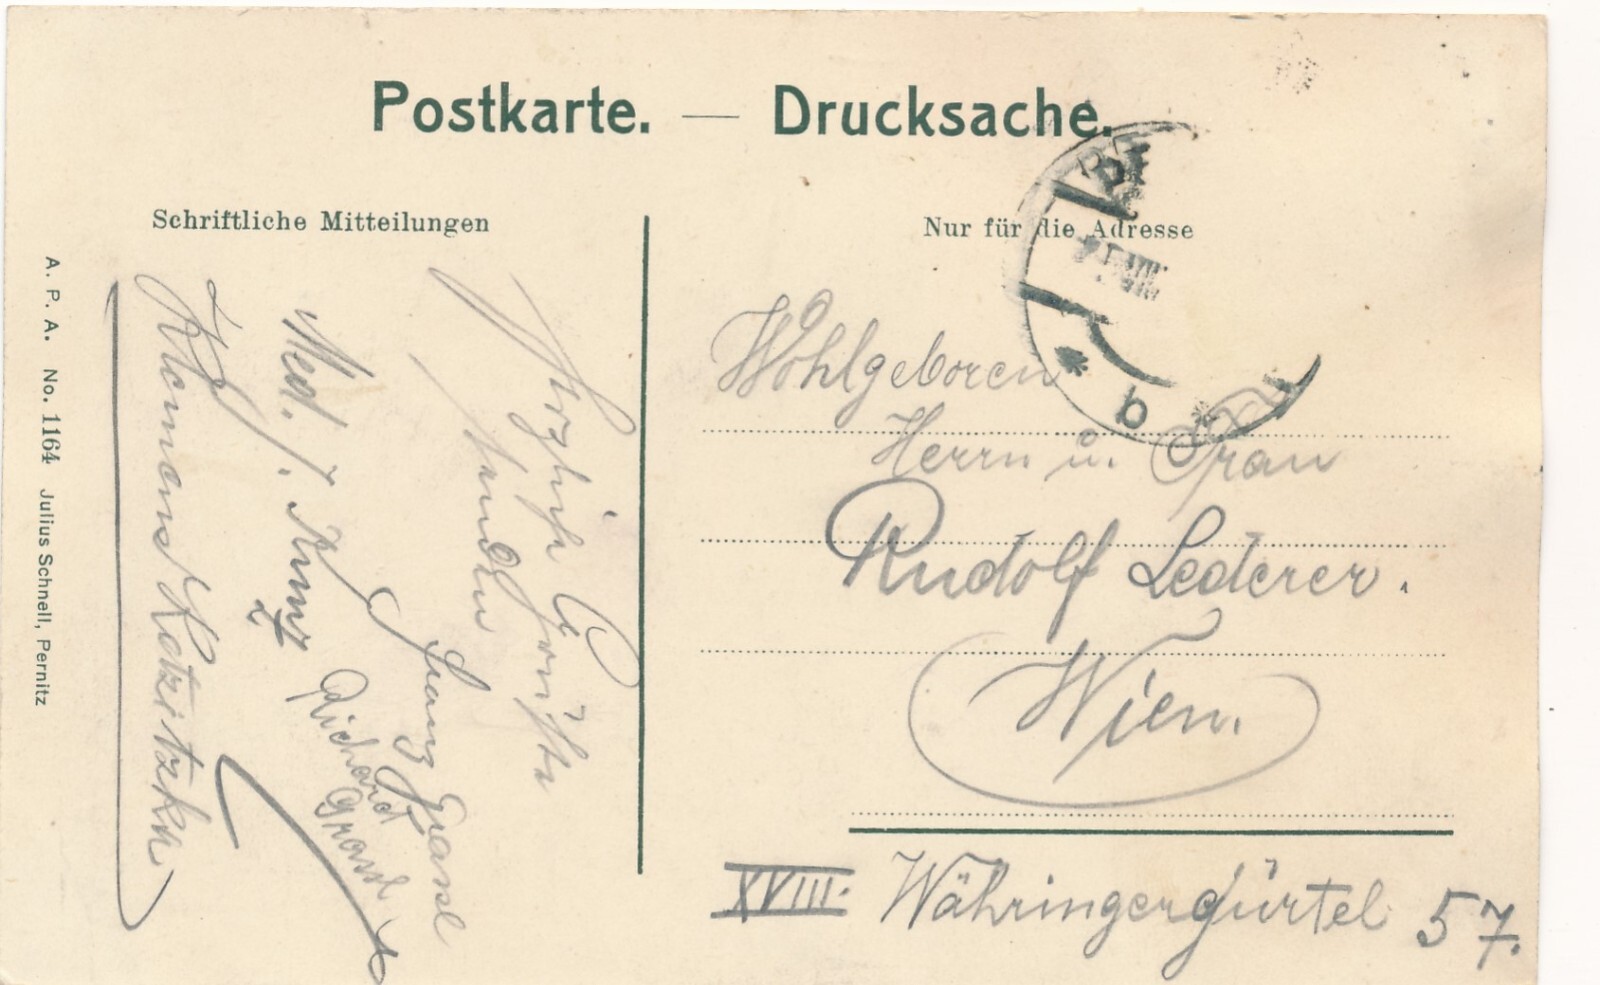 Postkarte. — Drucksache.
Schriftliche Mitteilungen
Nur für die Adresse
A. P. A. No. 1164 Julius Schnell, Pernitz
Herzliche Grüße
senden
Franz Grassl
Richard Grassl
Med. Kunz
Klemens
Wohlgeboren
Herrn u. Frau
Rudolf Lederer.
Wien.
XVIII. Währingergürtel 57.
b